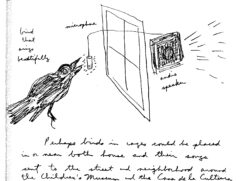 bird
that
sings
beautifully
microphone
audio
speaker
Perhaps birds in cages could be placed
in or near both house and their songs
sent to the street and neighborhood around
the Children's Museum and the Casa de la Cultura